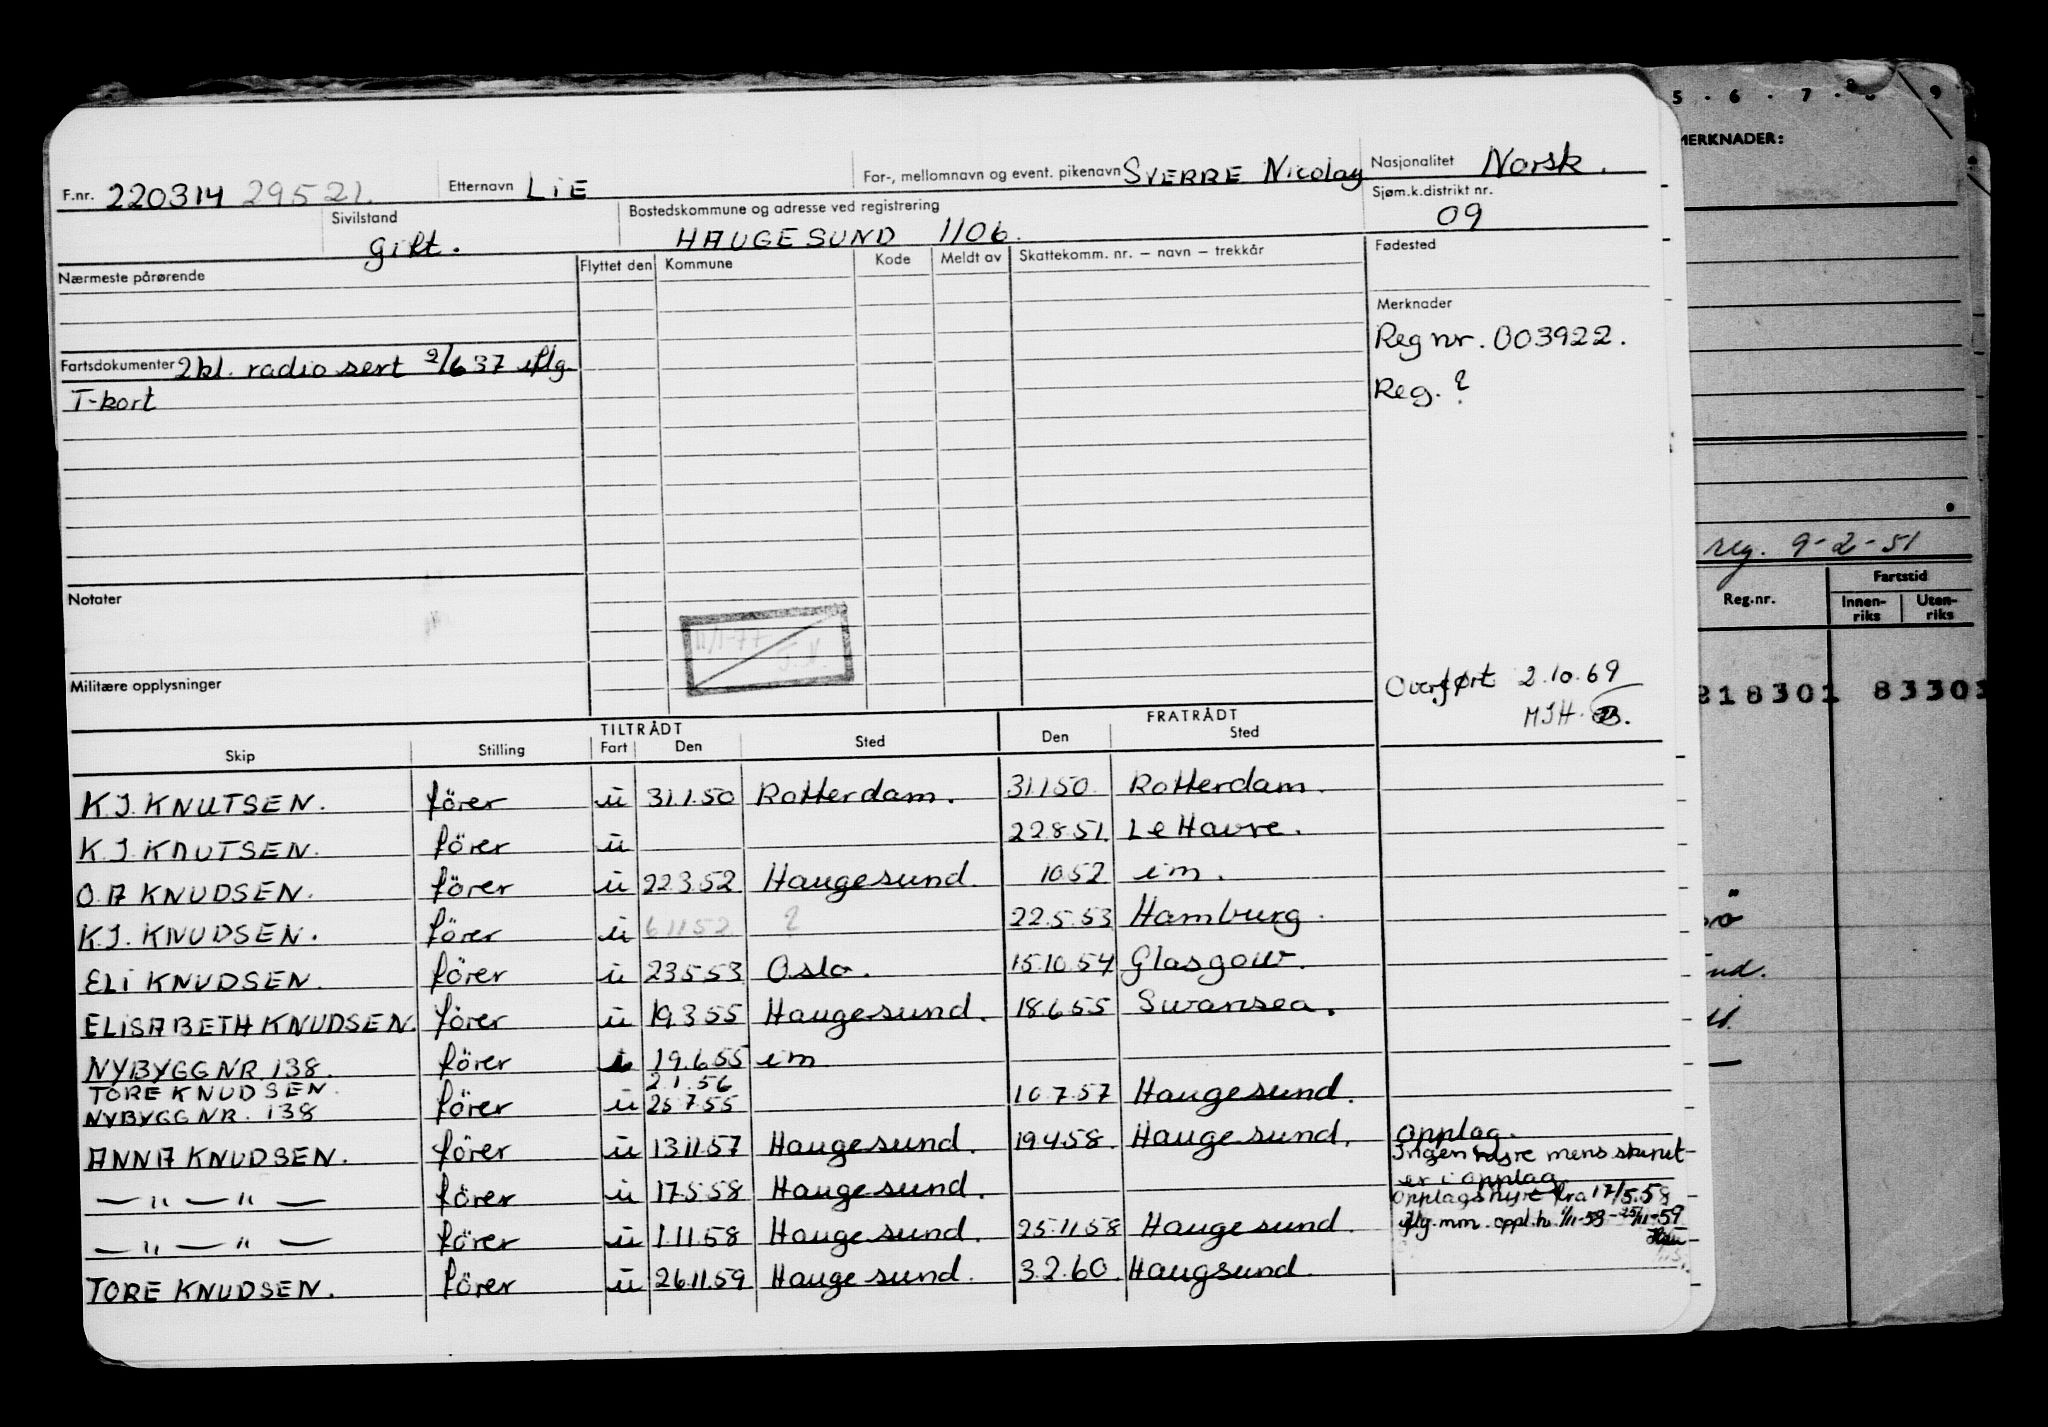 F.nr. 220314 29521. Etternavn LIE For-, mellomnavn og event. pikenavn SVERRE Nicolay Nasjonalitet Norsk.
Sivilstand gift. Bostedskommune og adresse ved registrering HAUGESUND 1106. Sjøm.k.distrikt nr. 09
Nærmeste pårørende Flyttet den Kommune Kode Meldt av Skattekomm. nr. – navn – trekkår Fødested
Merknader
Reg nr. 003922.
Fartsdokumenter 2kl. radio sert 2/6 37 iflg.
T-kort
Reg. ?
Notater
11/1-77
Militære opplysninger
Overført 2.10.69
MJH.
TILTRÅDT FRATRÅDT
Skip Stilling Fart Den Sted Den Sted
K.J. KNUTSEN. förer u 31.1.50 Rotterdam. 31.1.50. Rotterdam.
K.J. KNUTSEN. förer u 22.8.51. Le Havre.
O.A KNUDSEN. förer u 22.3.52 Haugesund. 10.52 im.
K.J. KNUDSEN. förer u 6.11.52 ? 22.5.53 Hamburg.
ELI KNUDSEN. förer u 23.5.53 Oslo. 15.10.54 Glasgow.
ELISABETH KNUDSEN. förer u 19.3.55 Haugesund. 18.6.55 Swansea.
NYBYGG NR. 138. förer 19.6.55 im
TORE KNUDSEN. 2.1.56
NYBYGG NR. 138 förer u 25.7.55 10.7.57 Haugesund.
ANNA KNUDSEN. förer u 13.11.57 Haugesund. 19.4.58. Haugesund. Opplag.
Ingen hyre mens skipet
er i opplag
— " — " — förer u 17.5.58 Haugesund. Opplagshyre fra 17/5.58
— " — " — förer u 1.11.58 Haugesund. 25.11.58 Haugesund. iflg. mm. oppl.h. 1/11-58-25/11-59
TORE KNUDSEN. förer u 26.11.59 Haugesund. 3.2.60. Haugsund.
5 . 6 . 7 . 8 . 9
MERKNADER:
reg. 9-2-51
Reg.nr. Fartstid
Innen-riks Uten-riks
218301 83301